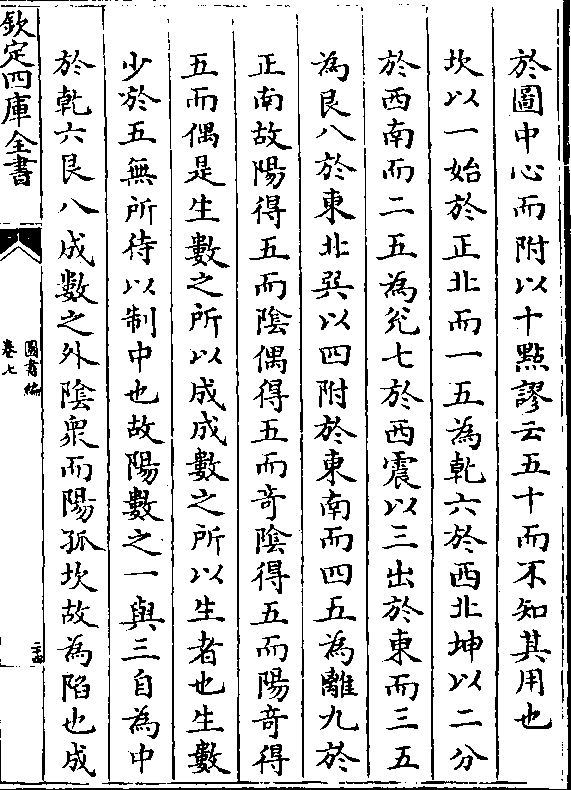 於圖中心而附以十點謬云五十而不知其用也
坎以一始於正北而一五為乾六於西北坤以二分
於西南而二五為兌七於西震以三出於東而三五
為艮八於東北巽以四附於東南而四五為離九於
正南故陽得五而陰偶得五而竒陰得五而陽竒得
五而偶是生數之所以成成數之所以生者也生數
少於五無所待以制中也故陽數之一與三自為中
於乾六艮八成數之外陰衆而陽孤坎故為陷也成
欽定四庫全書
圖書編
卷七
二十四